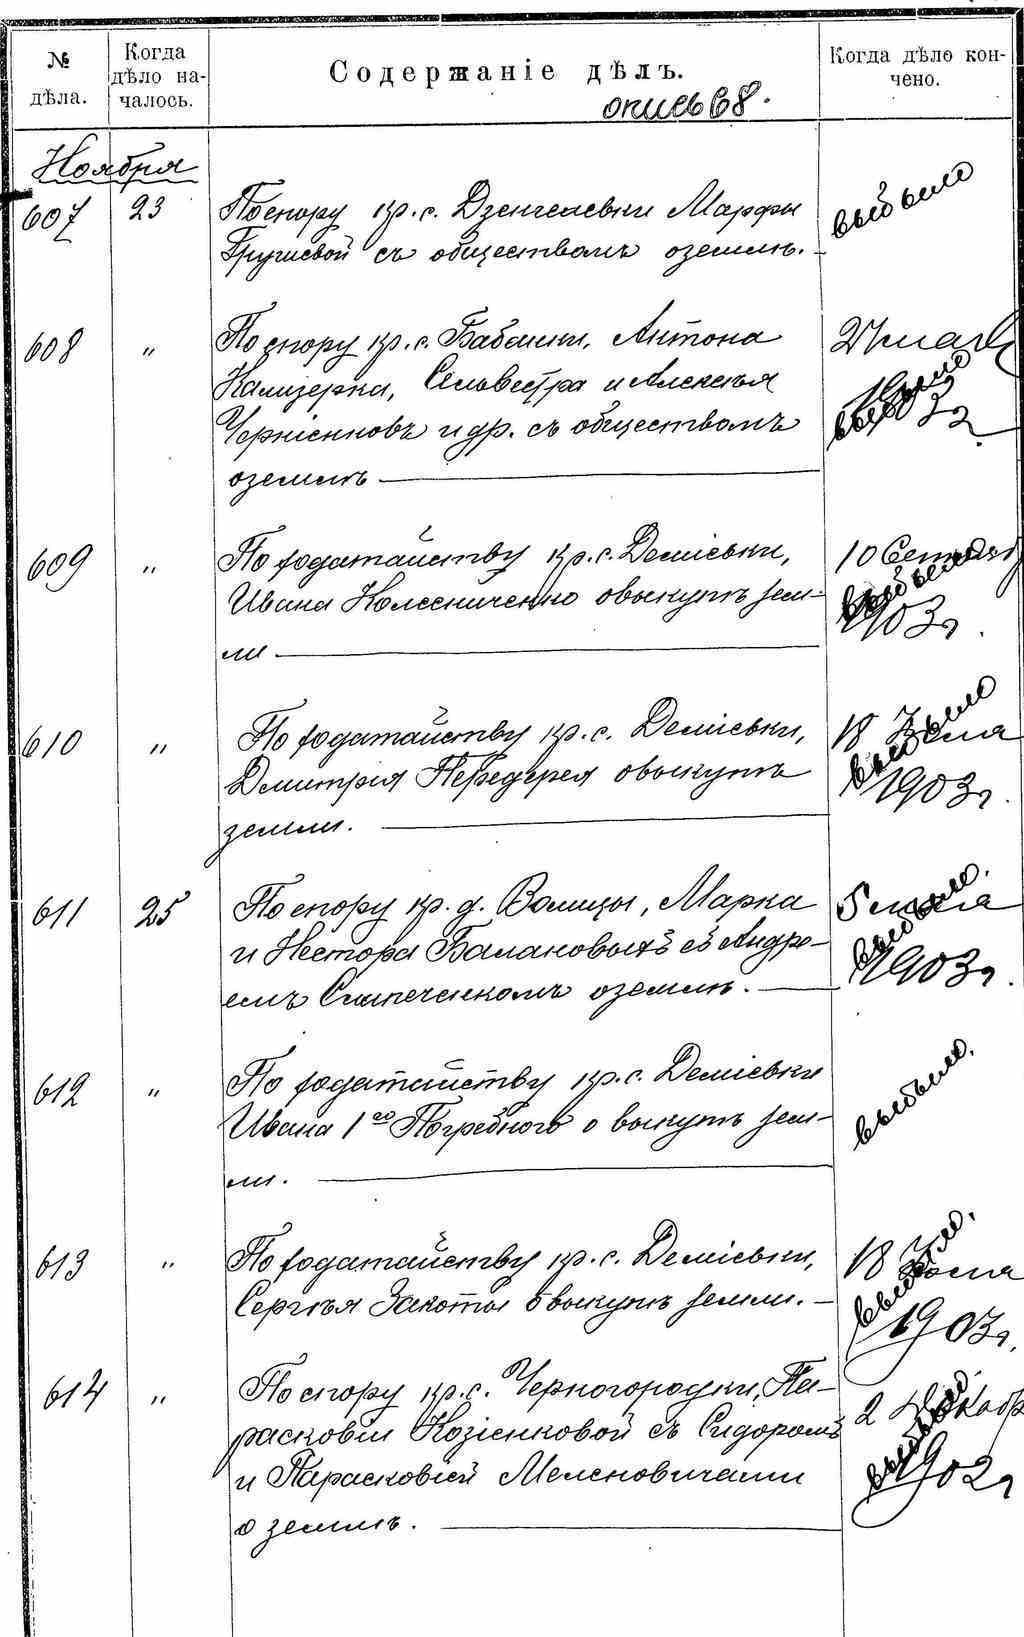 № дѣла.
Когда дѣло началось.
Содержаніе дѣлъ.
Когда дѣло кончено.
опись 68.
Ноября
607 23 По спору кр. с. Дзенгелевки Марфы выбыло
съ обществомъ о землѣ.
608 " По спору кр. с. Бабанки, Антона 27 мая
Сильвестра и Алексѣя выбыло 1903 г.
и др. съ обществомъ
о землѣ
609 " По ходатайству кр. с. Деміевки, 10 Сентября
Ивана Колесниченко о выкупѣ зем- выбыло 1903 г.
ли
610 " По ходатайству кр. с. Деміевки, 18 выбыло
Дмитрія Передерея о выкупѣ 1903 г.
земли.
611 25 По спору кр. д. Волицы, Марка 5 выбыло.
и Нестора Балановыхъ съ Андре- 1903 г.
емъ о землѣ.
612 " По ходатайству кр. с. Деміевки выбыло.
Ивана 1го Погребного о выкупѣ зем-
ли.
613 " По ходатайству кр. с. Деміевки, 18 выбыло.
Сергѣя Закоты о выкупѣ земли. 1903 г.
614 " По спору кр. с. Черногородки, Па- 2 Декабр
расковіи Козіенковой съ Сидоромъ выбыло
и Парасковіей Меленовичами 1902 г.
о землѣ.